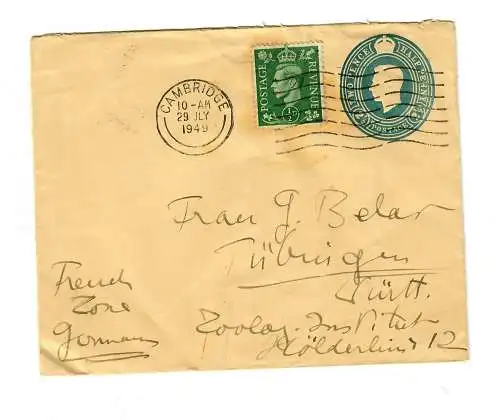 CAMBRIDGE
10-AM
29 JLY
1949
POSTAGE REVENUE
½D
TWO PENCE HALF PENNY
POSTAGE
Frau G. Belar
Tübingen
Württ.
Zoolog. Institut
Hölderlinstr 12
French
Zone
Germany